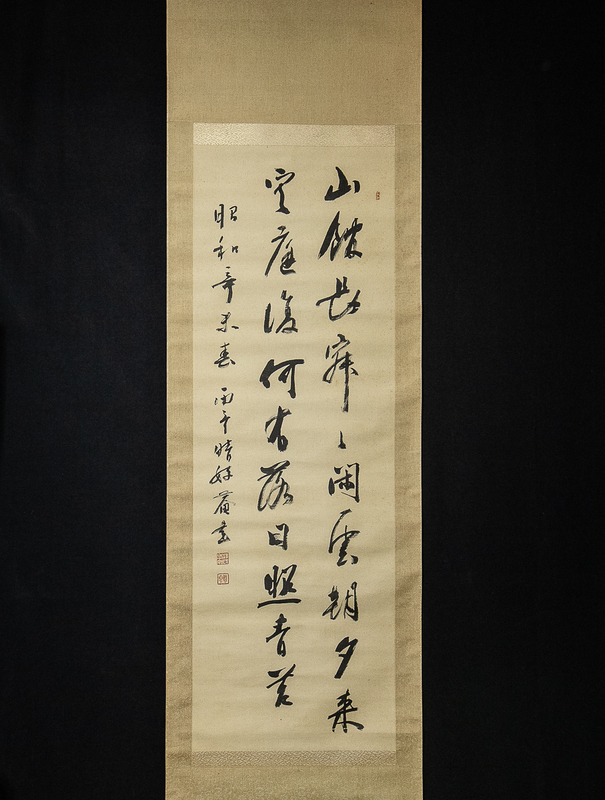 山館長寂〻閑雲朝夕来
空庭復何有落日照青苔
昭和辛未春 雨奇晴好菴書